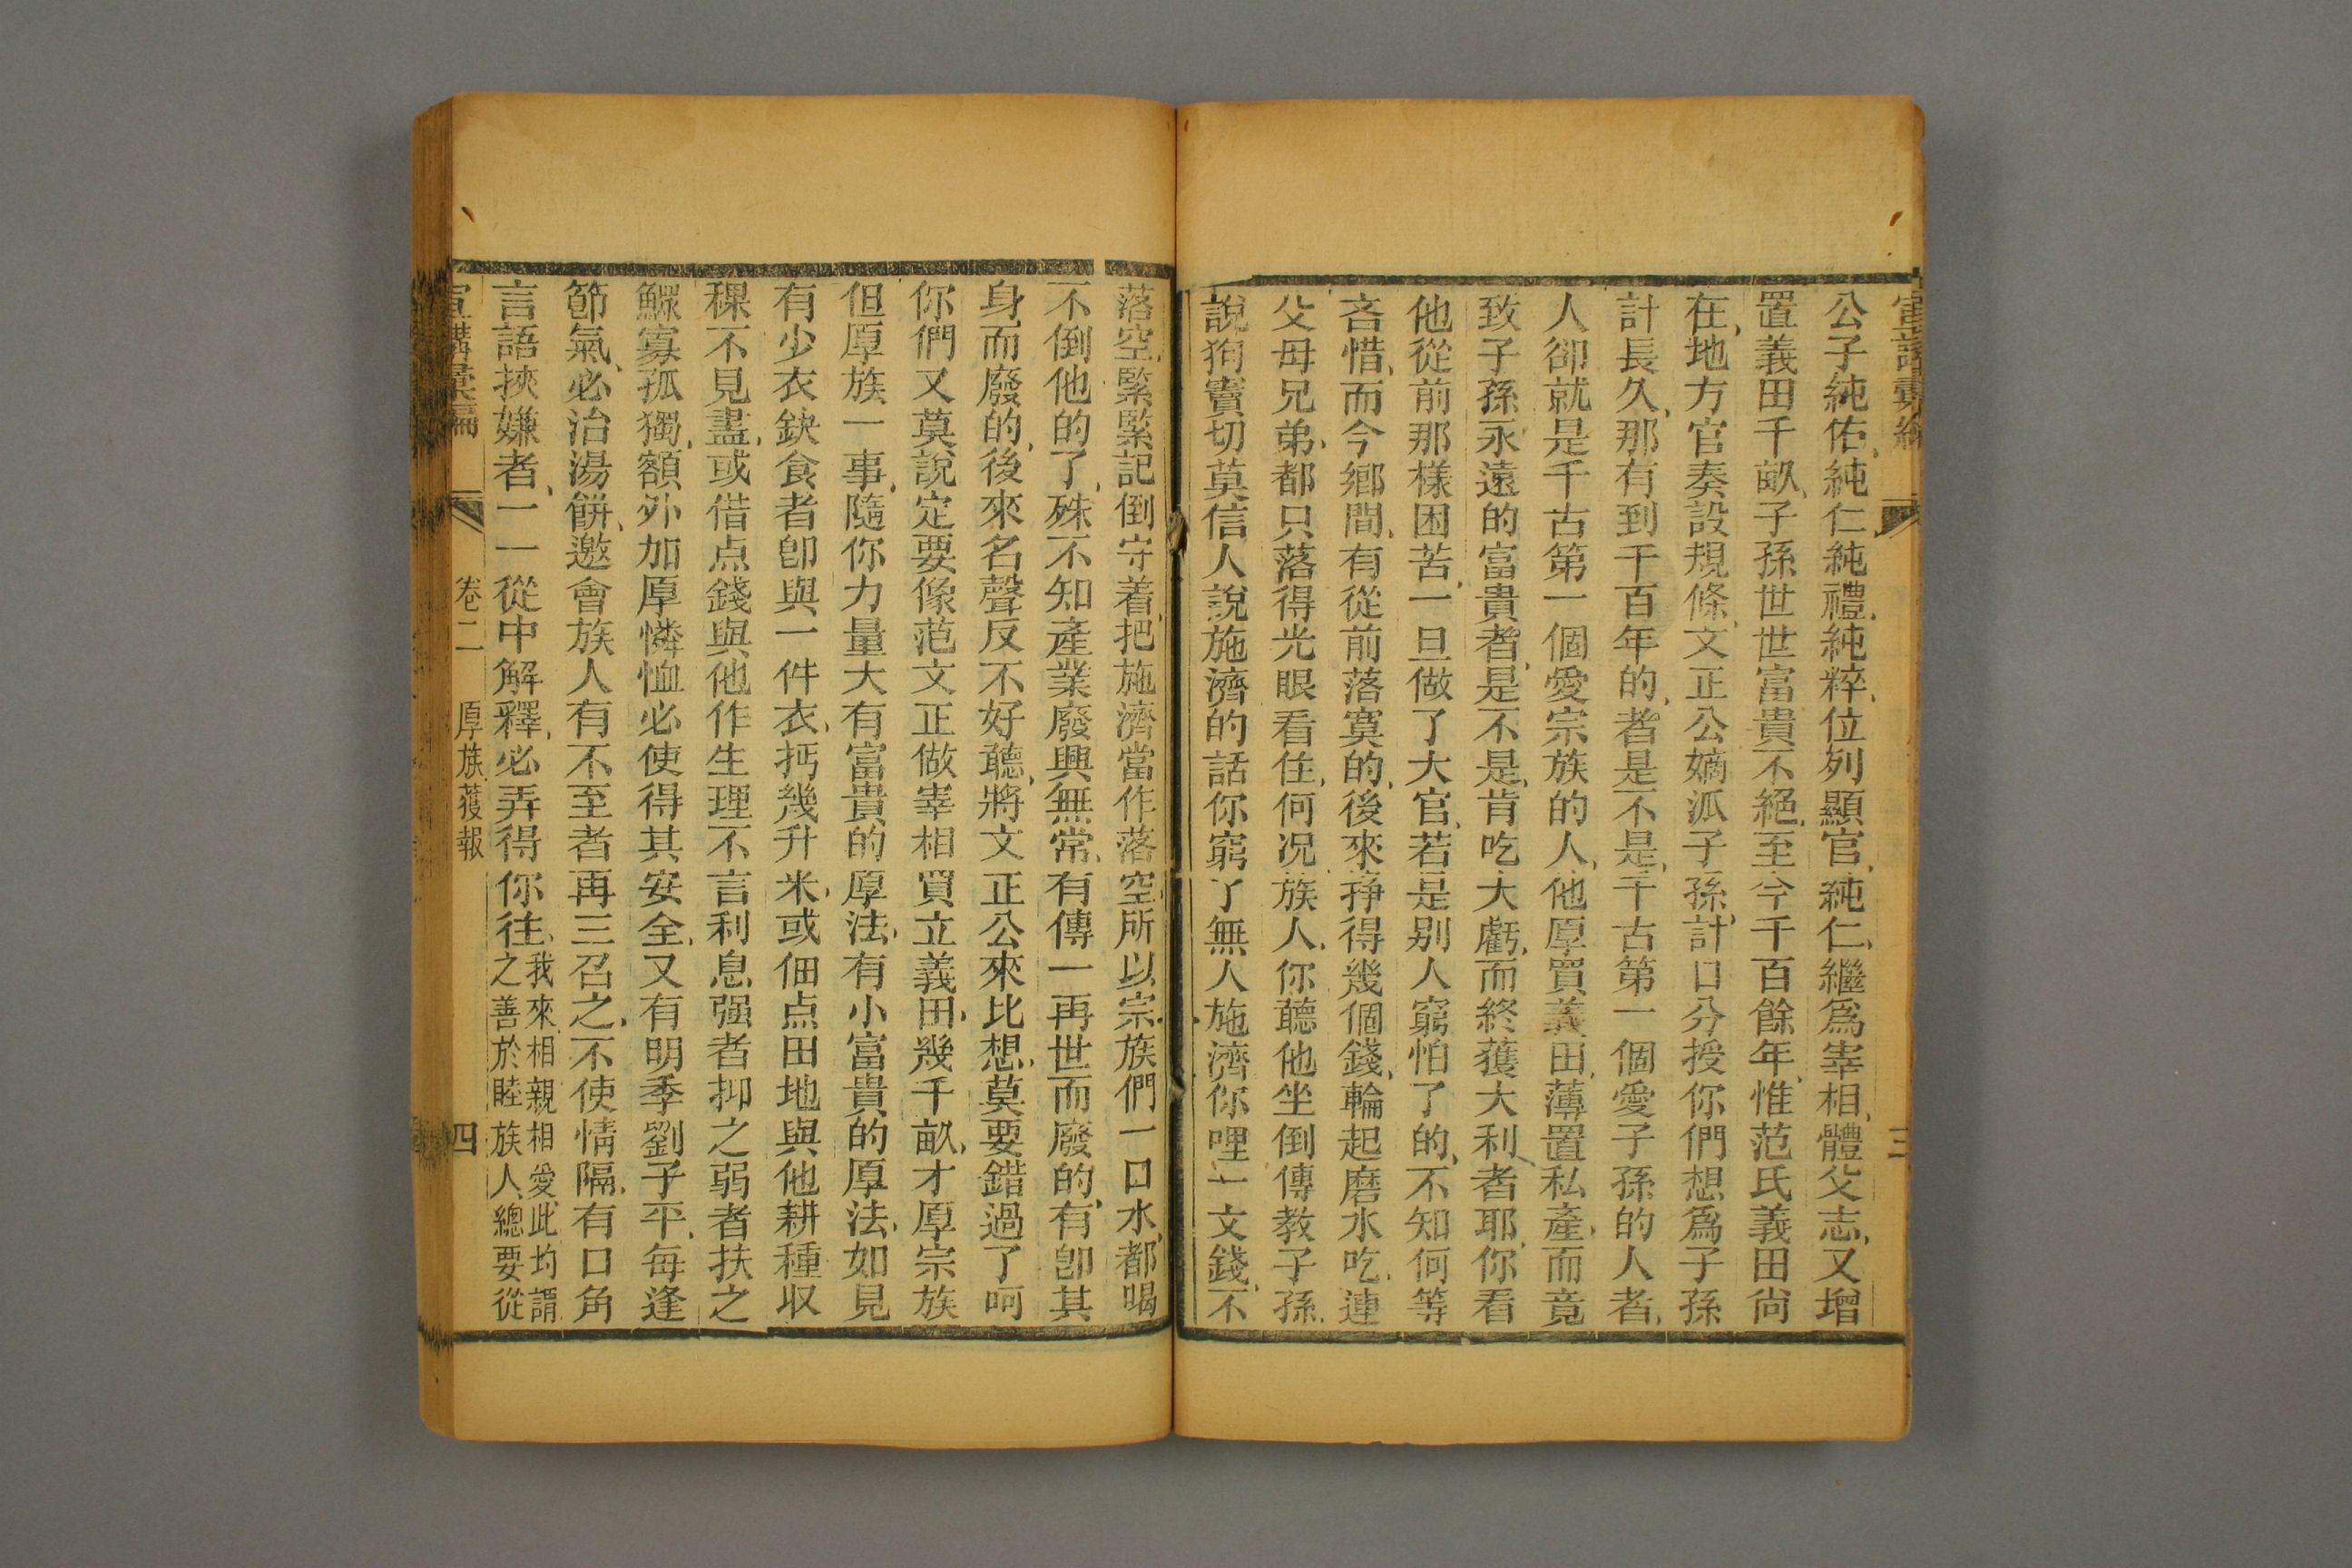 宣講彙編 三
公子純佑、純仁純禮、純粹、位列顯官、純仁、繼爲宰相、體父志、又增
置義田千畝、子孫世世富貴不絕、至今千百餘年、惟范氏義田尙
在、地方官奏設規條、文正公嫡派子孫、計口分授你們想爲子孫
計長久、那有到千百年的、者是不是、千古第一個愛子孫的人者、
人卻就是千古第一個愛宗族的人、他厚買義田、薄置私產、而竟
致子孫永遠的富貴者、是不是、肯吃大虧、而終獲大利者耶、你看
他從前那樣困苦、一旦做了大官、若是别人窮怕了的、不知何等
吝惜、而今鄉間、有從前落寞的、後來掙得幾個錢、輪起磨水吃、連
父母兄弟、都只落得光眼看住、何况族人、你聽他坐倒傳教子孫、
說狗竇切莫信人說施濟的話你窮了無人施濟你哩一文錢、不
落空、緊緊記倒守着、把施濟當作落空所以宗族們一口水、都喝
不倒他的了、殊不知產業廢興無常、有傳一再世而廢的、有卽其
身而廢的、後來名聲反不好聽、將文正公來比想、莫要錯過了呵
你們又莫說定要像范文正做宰相買立義田、幾千畝、才厚宗族
但厚族一事、隨你力量大有富貴的厚法、有小富貴的厚法、如見
有少衣鈌食者卽與一件衣、抅幾升米、或佃点田地與他耕種収
稞不見盡、或借点錢與他作生理不言利息强者抑之弱者扶之
鰥寡孤獨、額外加厚憐恤必使得其安全、又有明季劉子平、每逢
節氣、必治湯餅、邀會族人有不至者再三召之、不使情隔、有口角
言語挾嫌者、一一從中解釋、必弄得你往、我來、相親相愛此均謂之善於睦族人、總要從
宣講彙編 卷二 厚族獲報 四